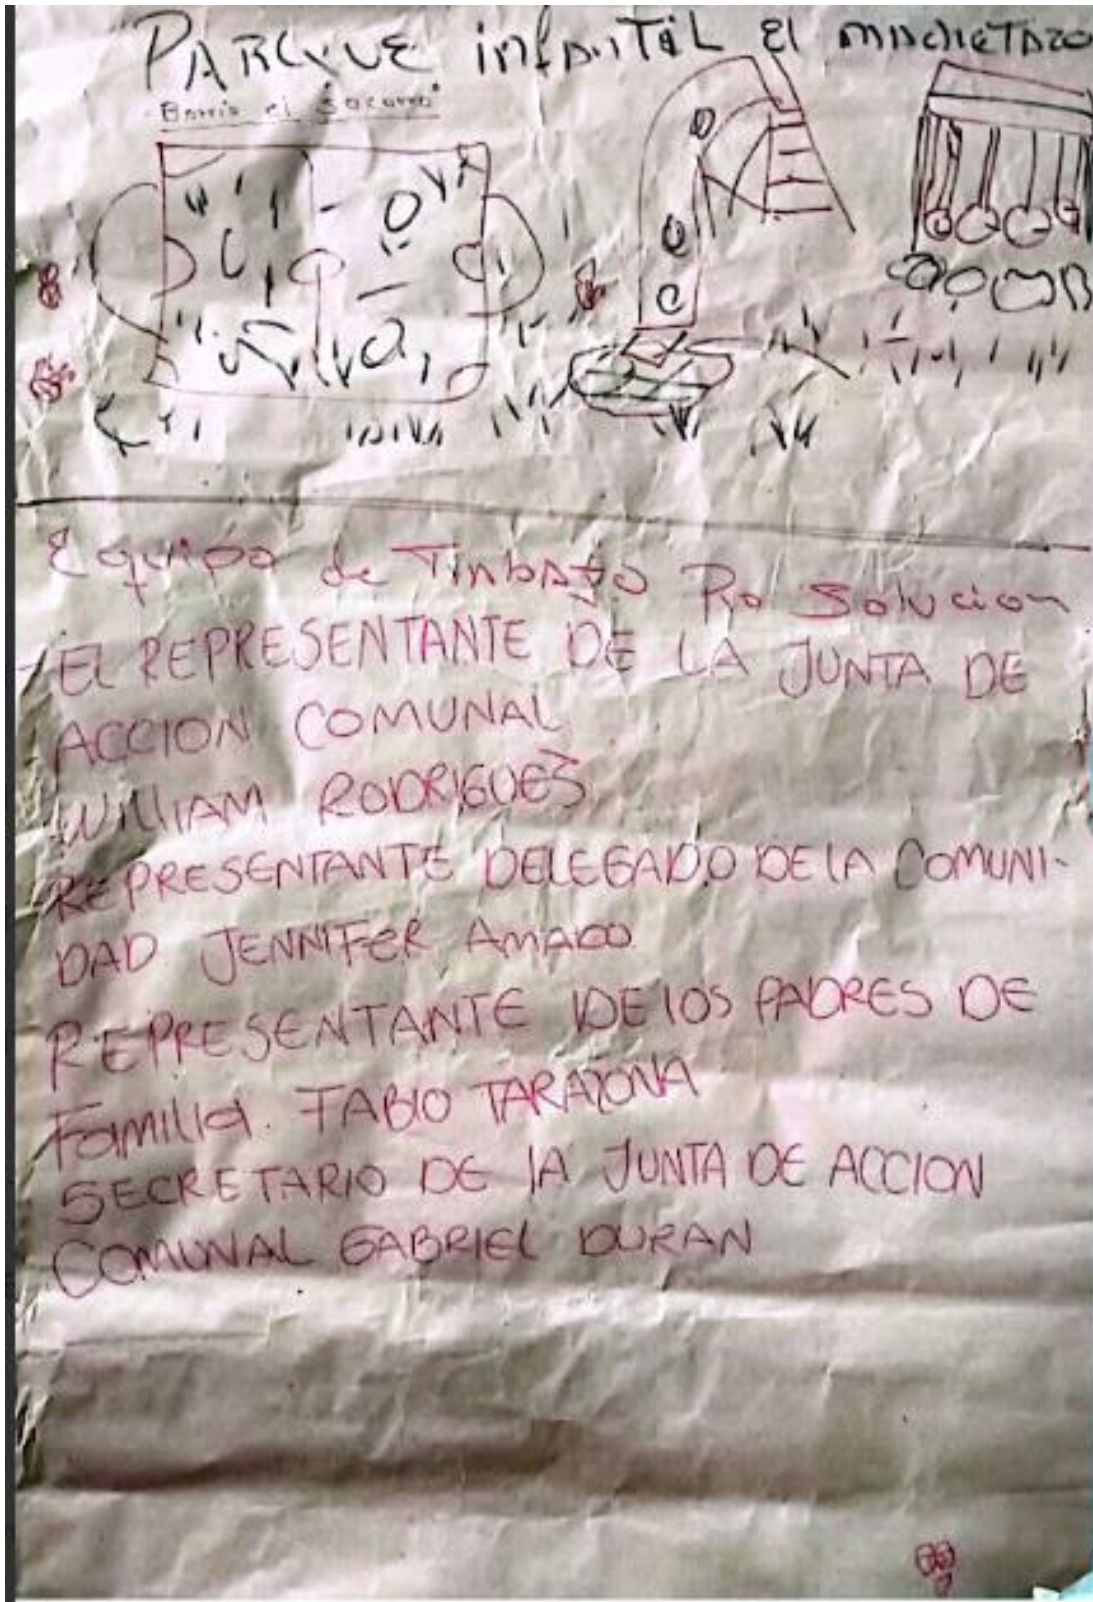 PARQUE infantil El machetazo
Barrio el Socorro
Equipo de Trabajo Pro Solucion
EL REPRESENTANTE DE LA JUNTA DE
ACCION COMUNAL
WILLIAM RODRIGUES
REPRESENTANTE DELEGADO DE LA COMUNI-
DAD JENNIFER AMADO
REPRESENTANTE DE LOS PADRES DE
Familia. FABIO TARAZONA
SECRETARIO DE LA JUNTA DE ACCION
COMUNAL GABRIEL DURAN